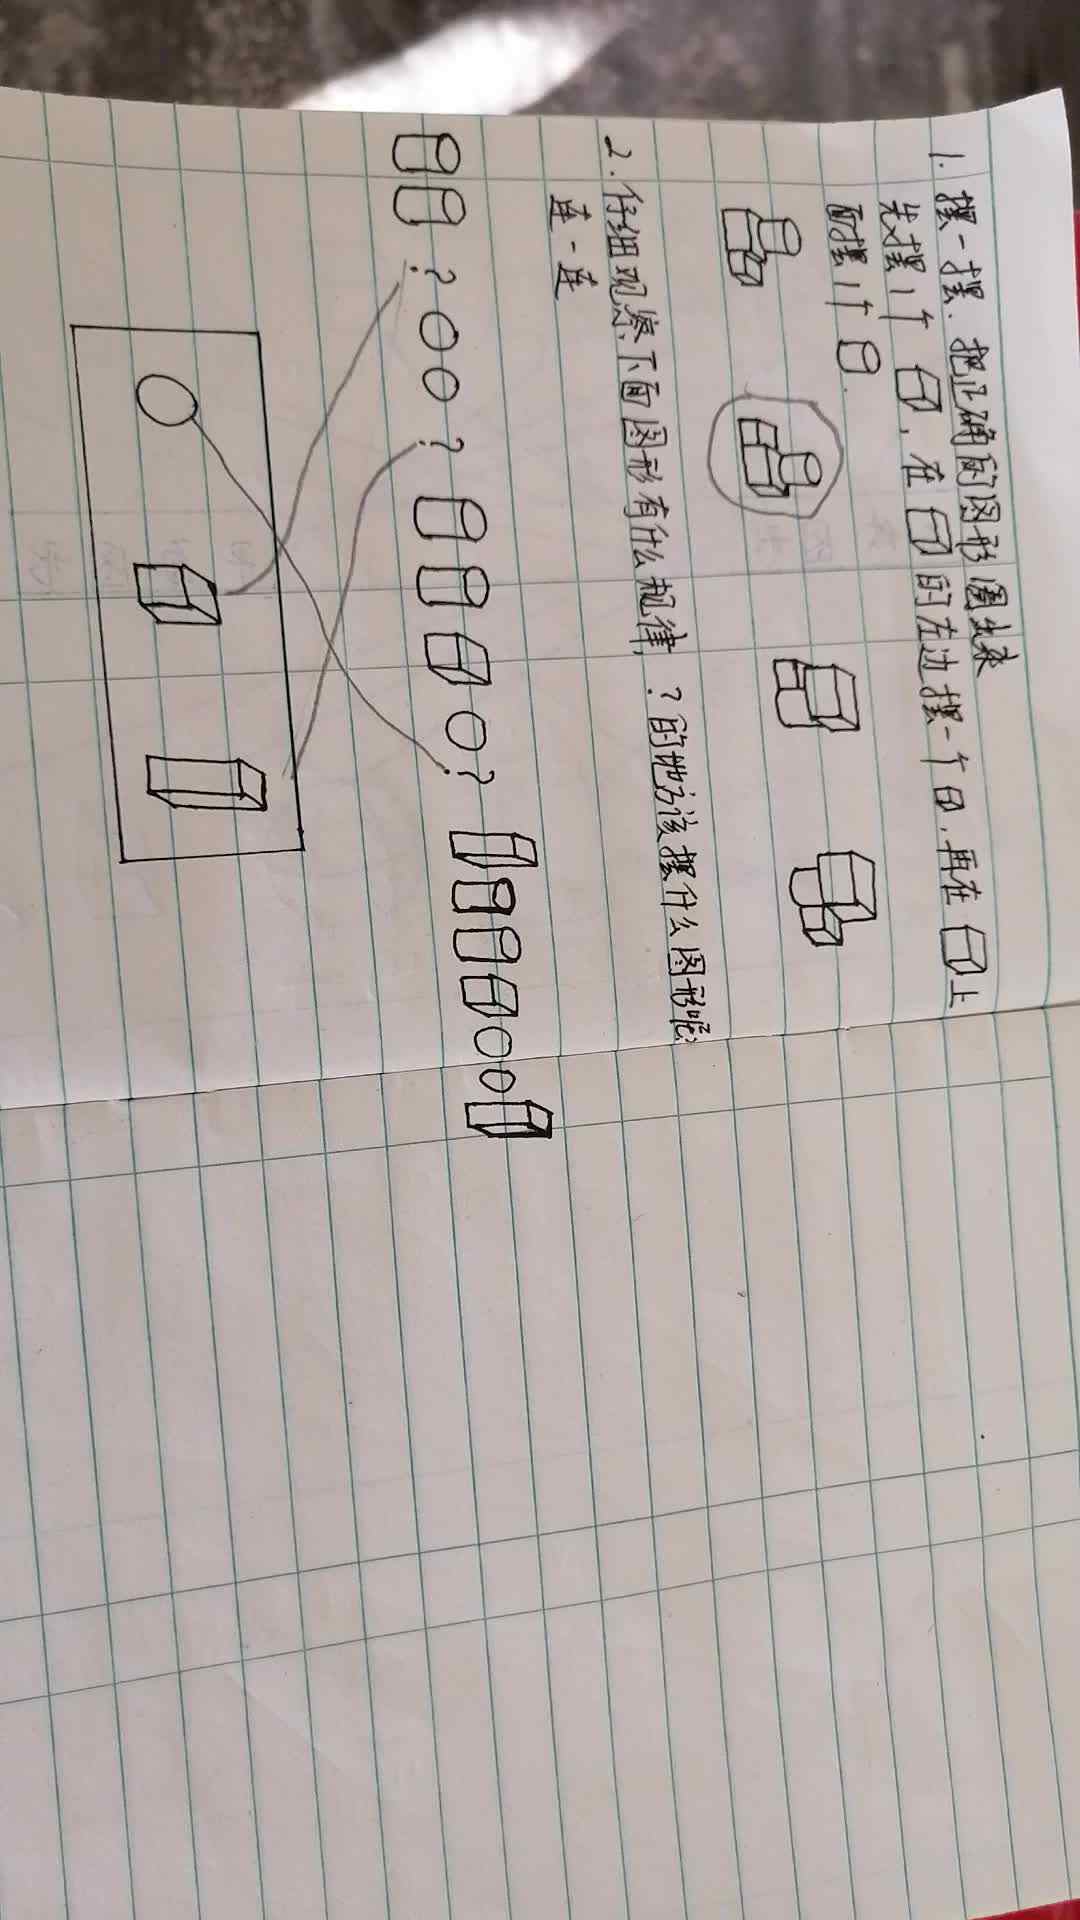 1. 摆一摆、把正确的图形圈出来
先摆1个 , 在 的左边摆一个 , 再在 上
面摆1个 .
2. 仔细观察下面图形有什么规律, ?的地方该摆什么图形呢?
连一连
? ? ?